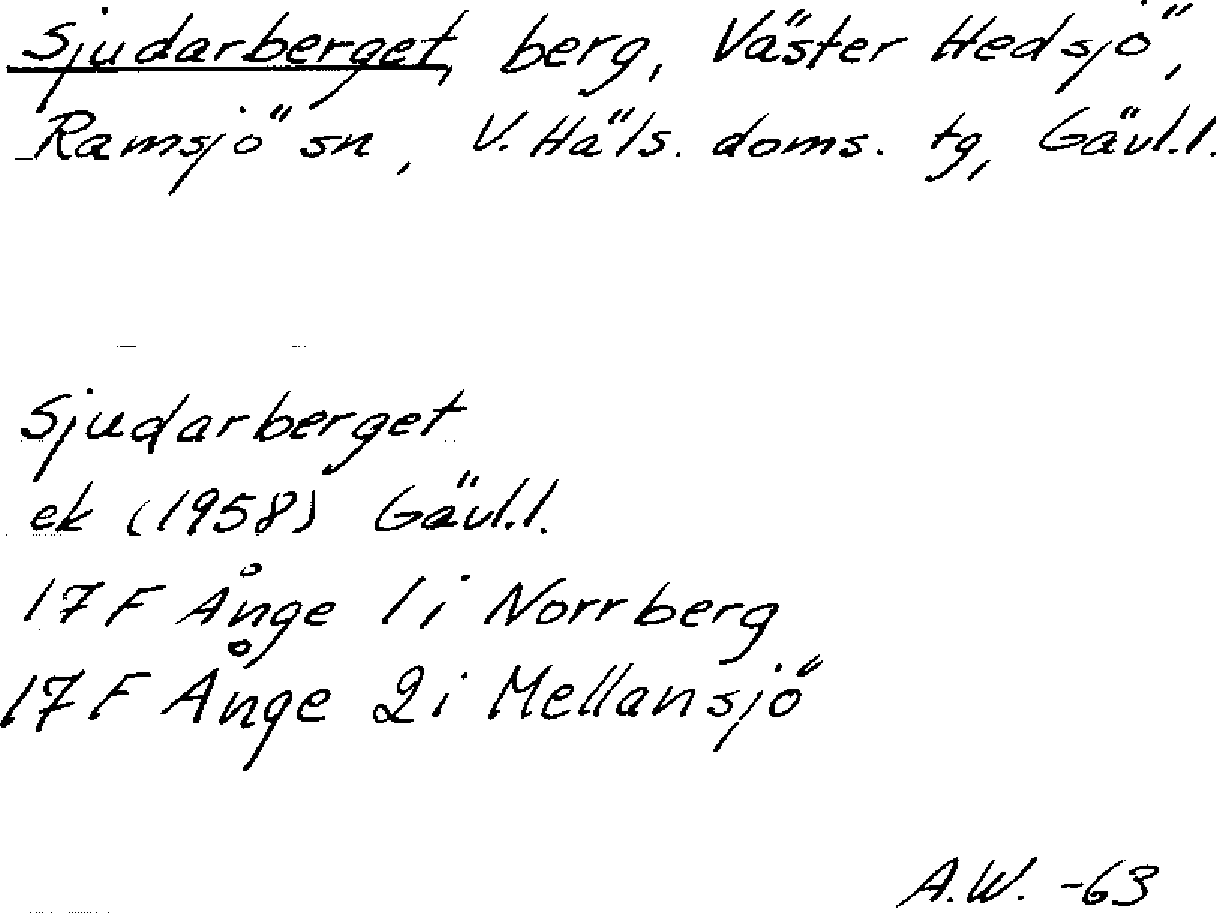 Sjudarberget, berg, Väster Hedsjö,
Ramsjö sn, V. Häls. doms. tg, Gävl.l.
Sjudarberget
ek (1958) Gävl.l.
17 F Ånge 1 i Norrberg
17 F Ånge 2 i Mellansjö
A.W. -63